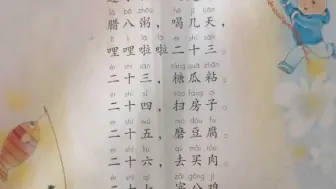 là bā zhōu
腊八粥，喝几天，
lī lī lā lā èr shí sān
哩哩啦啦二十三。
èr shí sān táng guā zhān
二十三，糖瓜粘；
èr shí sì sǎo fáng zi
二十四，扫房子。
èr shí wǔ mò dòu fu
二十五，磨豆腐；
èr shí liù qù mǎi ròu
二十六，去买肉。
zǎi gōng jī